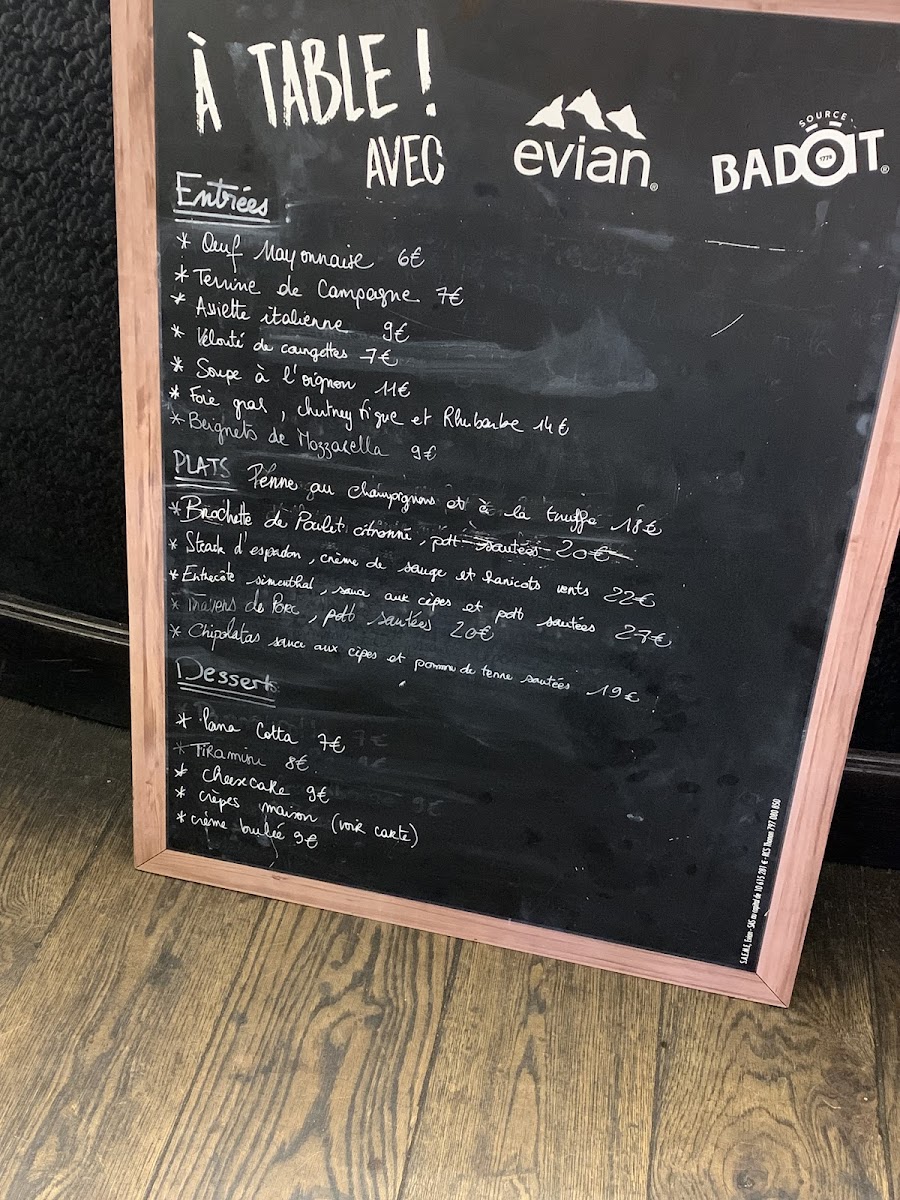 À TABLE !
AVEC
evian®
SOURCE
BADOIT®
1778
Entrées
* Œuf Mayonnaise 6€
* Terrine de Campagne 7€
* Assiette italienne 9€
* Velouté de courgettes 7€
* Soupe à l'oignon 11€
* Foie gras, chutney figue et Rhubarbe 14€
* Beignets de Mozzarella 9€
PLATS Penne au champignons et à la truffe 18€
* Brochette de Poulet citronné, pdt sautées 20€
* Steak d'espadon, crème de sauge et haricots verts 22€
* Entrecôte simenthal, sauce aux cèpes et pdt sautées 27€
* Travers de Porc, pdt sautées 20€
* Chipolatas sauce aux cèpes et pomme de terre sautées 19€
Desserts
* Pana Cotta 7€
* Tiramisu 8€
* cheescake 9€
* crèpes maison (voir carte)
* crème brulée 9€
S.A.E.M.E, Evian - SAS au capital de 10 615 281 € - RCS Thonon 797 080 850